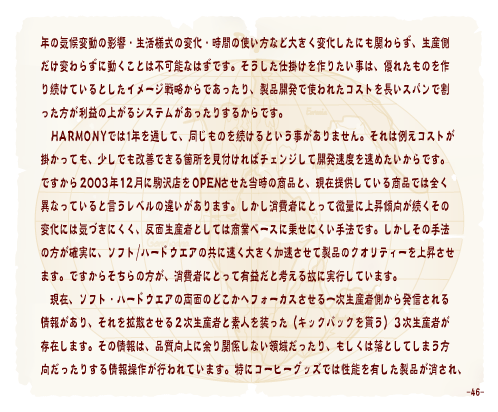 年の気候変動の影響・生活様式の変化・時間の使い方など大きく変化したにも関わらず、生産側
だけ変わらずに動くことは不可能なはずです。そうした仕掛けを作りたい事は、優れたものを作
り続けているとしたイメージ戦略からであったり、製品開発で使われたコストを長いスパンで割
った方が利益の上がるシステムがあったりするからです。
HARMONYでは1年を通して、同じものを続けるという事がありません。それは例えコストが
掛かっても、少しでも改善できる箇所を見付ければチェンジして開発速度を速めたいからです。
ですから2003年12月に駒沢店をOPENさせた当時の商品と、現在提供している商品では全く
異なっていると言うレベルの違いがあります。しかし消費者にとって微量に上昇傾向が続くその
変化には気づきにくく、反面生産者としては商業ベースに乗せにくい手法です。しかしその手法
の方が確実に、ソフト/ハードウエアの共に速く大きく加速させて製品のクオリティーを上昇させ
ます。ですからそちらの方が、消費者にとって有益だと考える故に実行しています。
現在、ソフト・ハードウエアの両面のどこかへフォーカスさせる一次生産者側から発信される
情報があり、それを拡散させる2次生産者と素人を装った（キックバックを貰う）3次生産者が
存在します。その情報は、品質向上に余り関係しない領域だったり、もしくは落としてしまう方
向だったりする情報操作が行われています。特にコーヒーグッズでは性能を有した製品が消され、
-46-